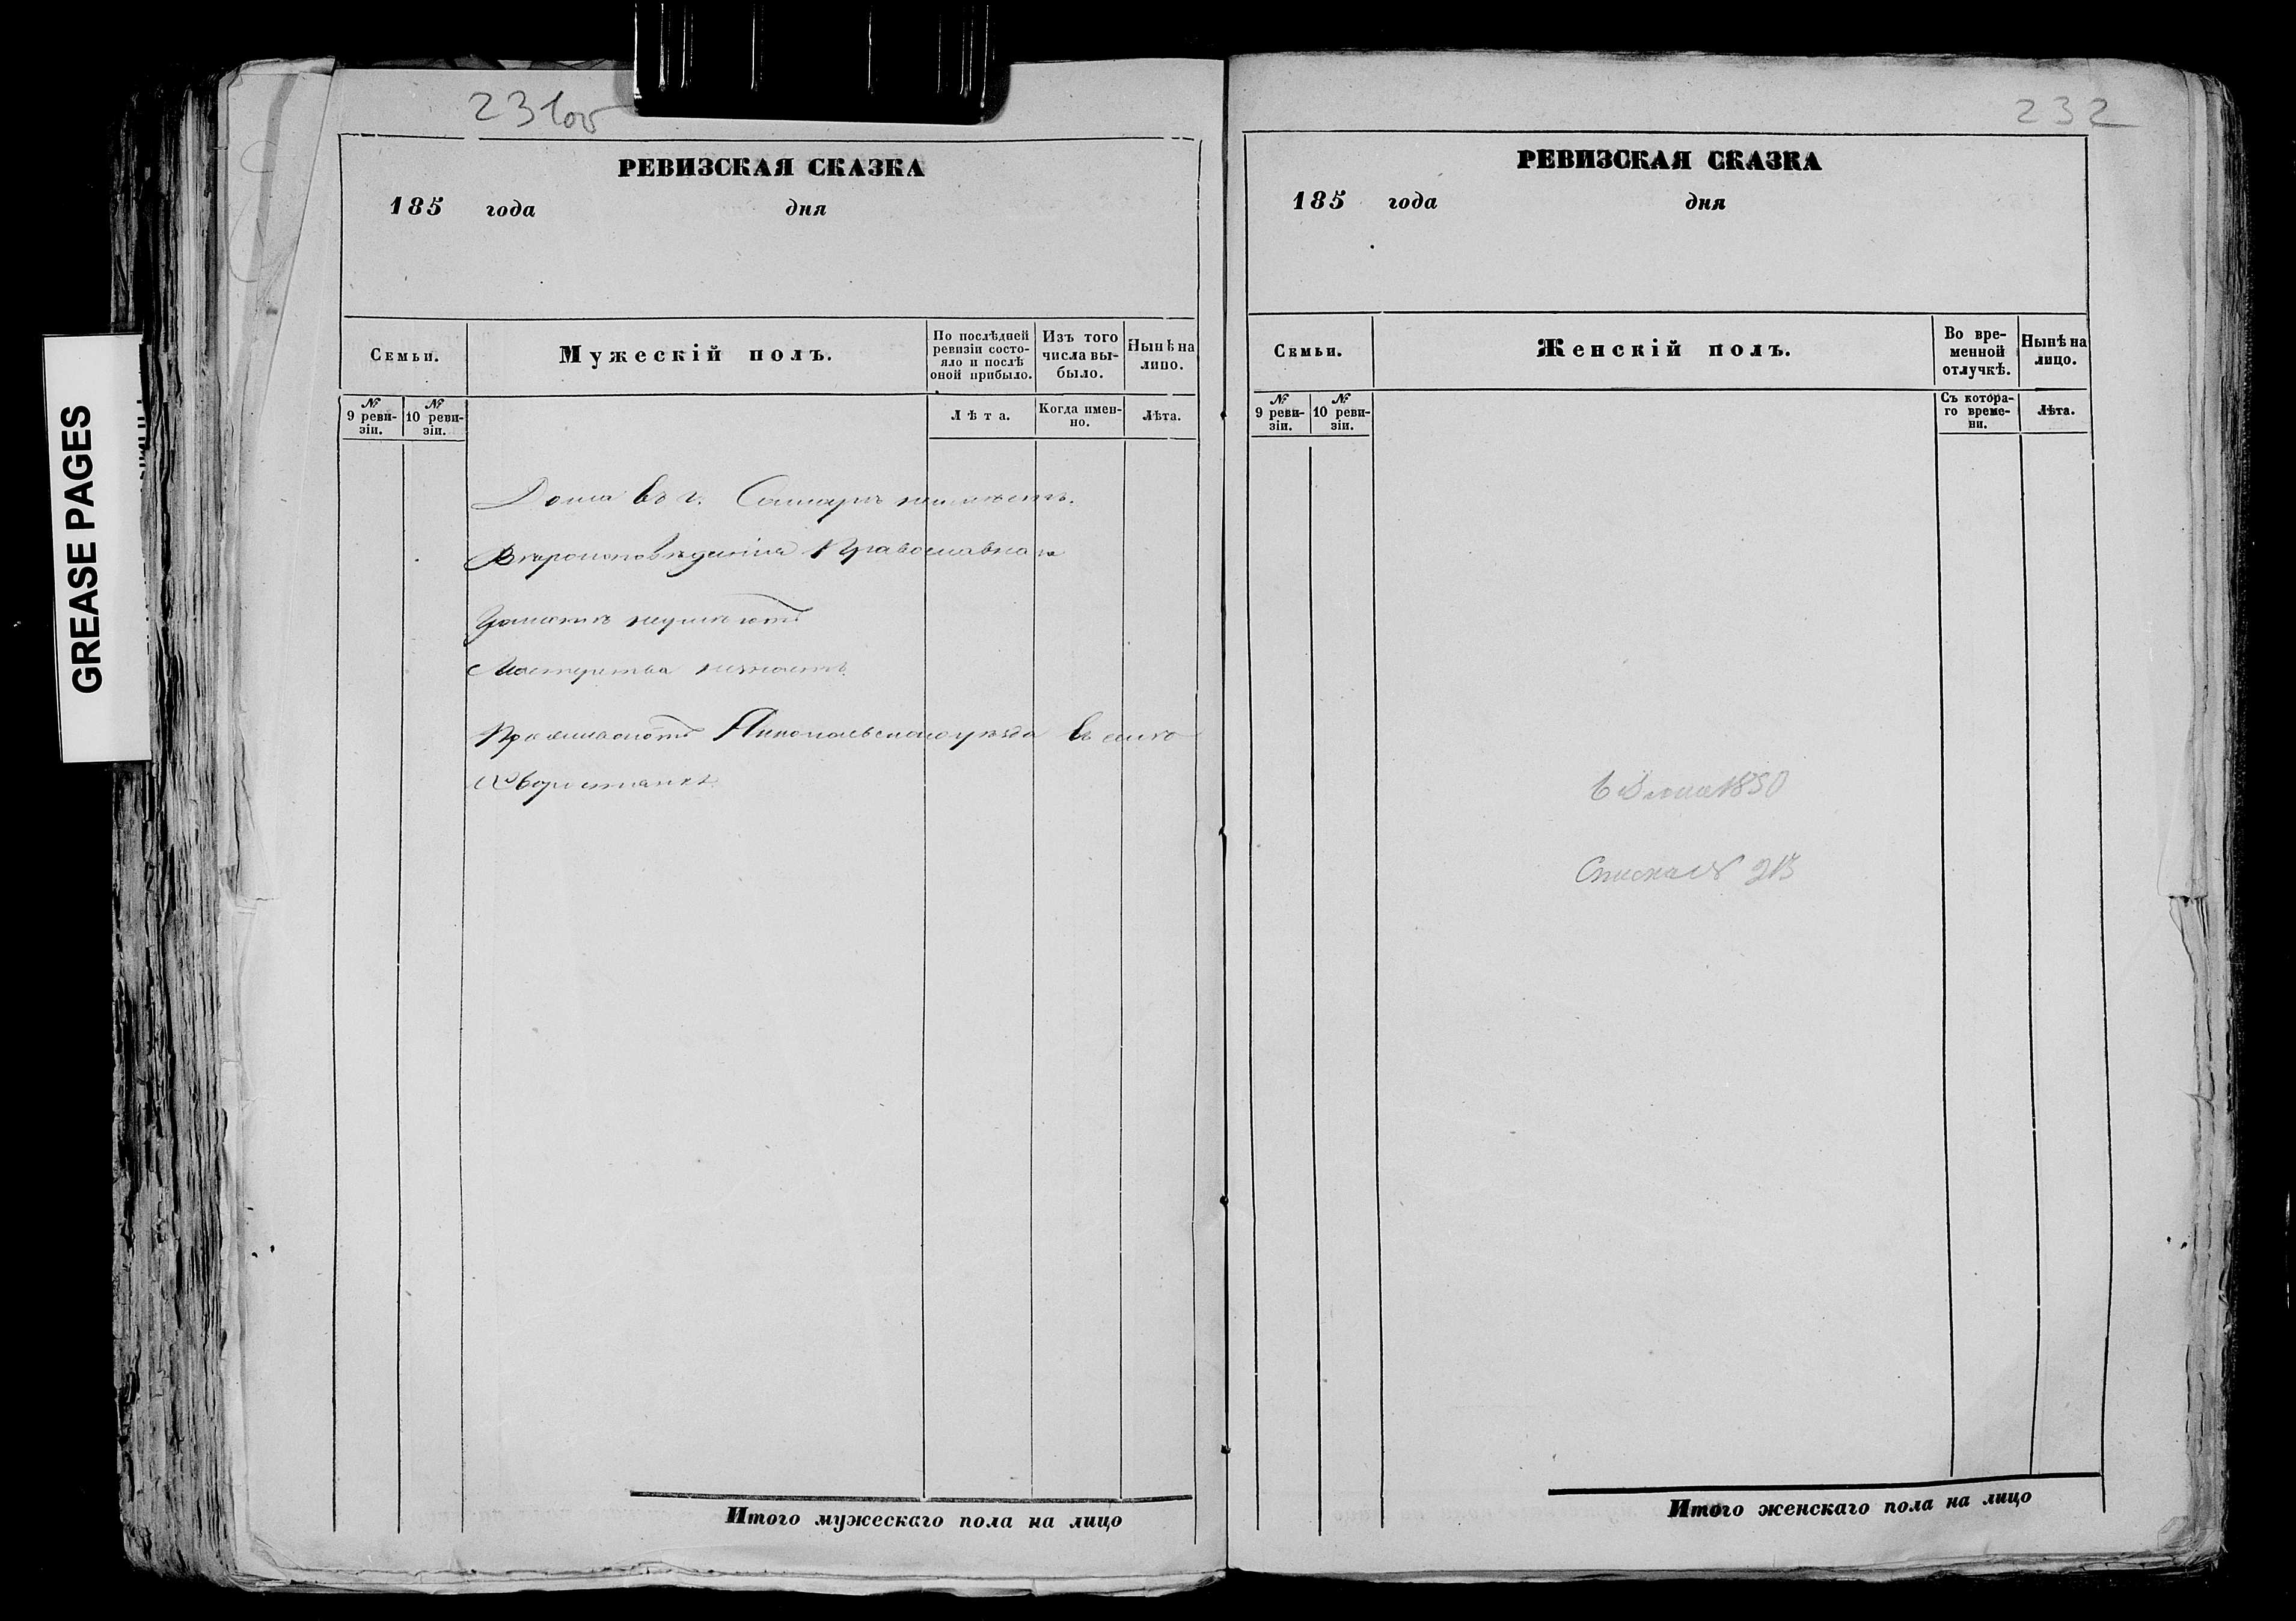 GREASE PAGES
231об
РЕВИЗСКАЯ СКАЗКА
185 года дня
Семьи.
Мужескій полъ.
По послѣдней ревизіи состояло и послѣ оной прибыло.
Изъ того числа выбыло.
Нынѣ на лицо.
№ 9 ревизіи.
№ 10 ревизіи.
Лѣта.
Когда именно.
Лѣта.
Дома въ г. неимѣетъ.
Вѣроисповѣданія Православнаго
Грамотѣ неумѣютъ
Мастерства незнаетъ
Проживаютъ уѣзда въ
Итого мужескаго пола на лицо
232
РЕВИЗСКАЯ СКАЗКА
185 года дня
Семьи.
Женскій полъ.
Во временной отлучкѣ.
Нынѣ на лицо.
№ 9 ревизіи.
№ 10 ревизіи.
Съ котораго времени.
Лѣта.
1850
Списка №
Итого женскаго пола на лицо